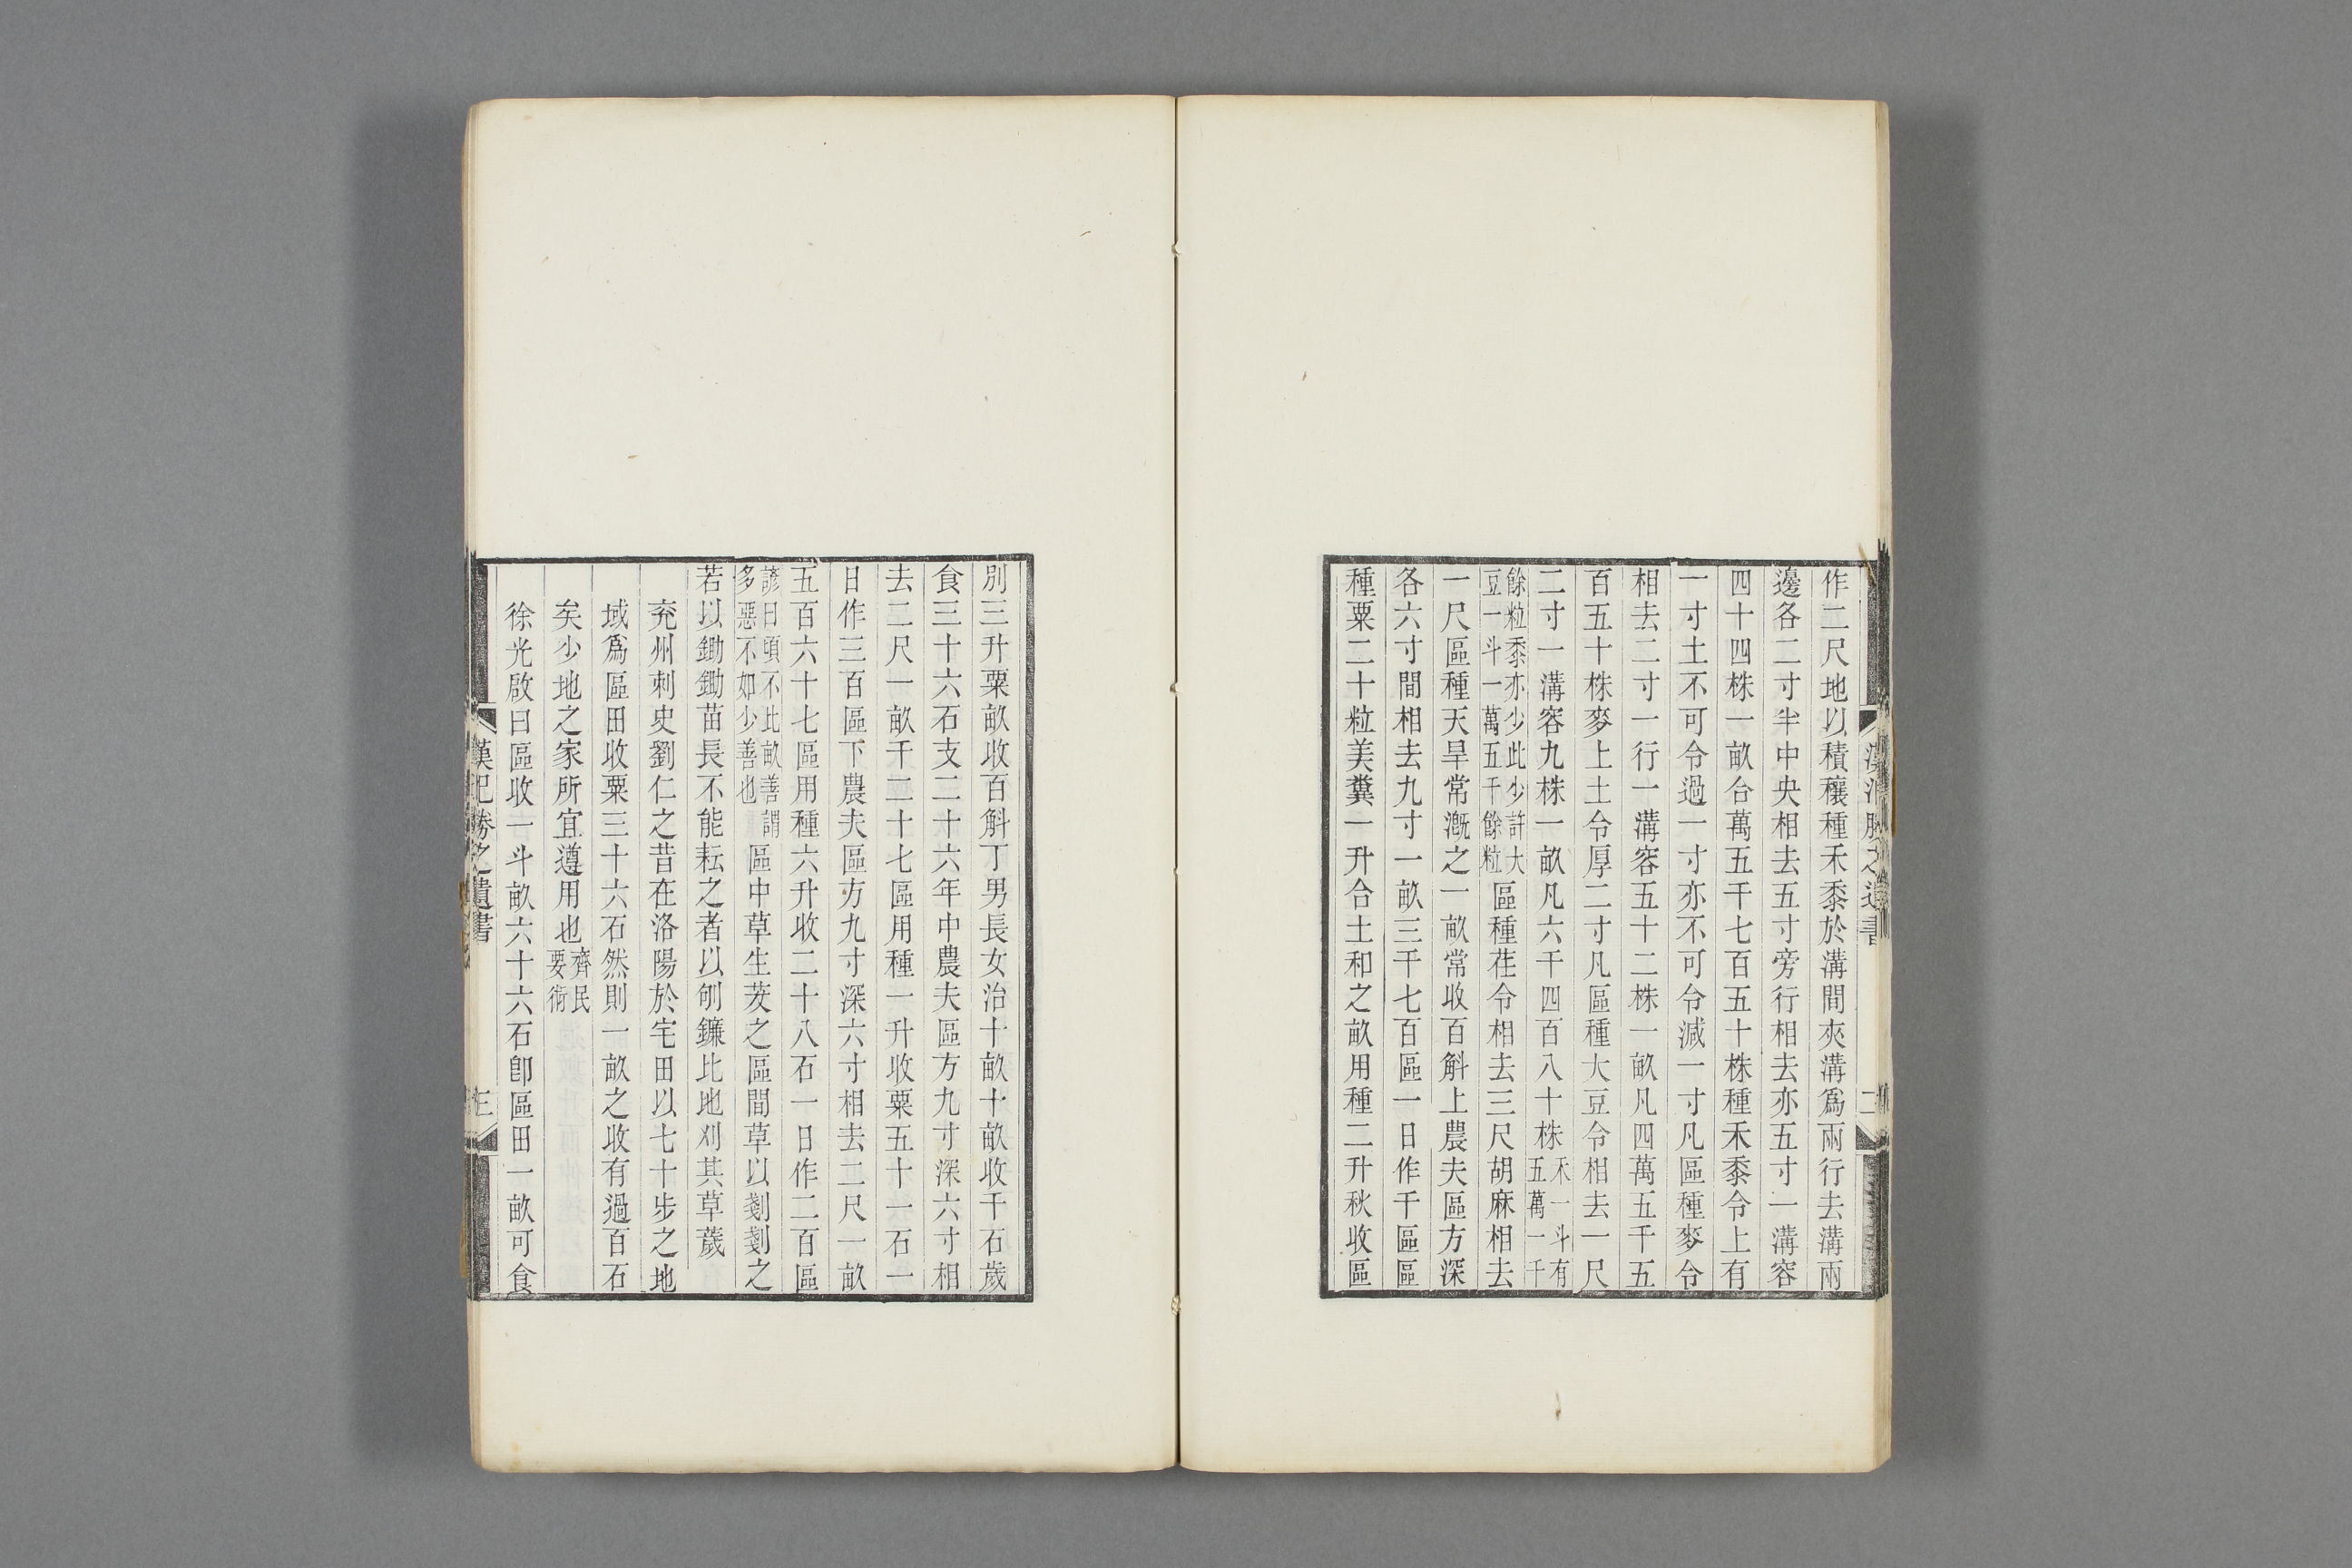 作二尺地以積穰種禾黍於溝間夾溝爲兩行去溝兩
邊各二寸半中央相去五寸旁行相去亦五寸一溝容
四十四株一畝合萬五千七百五十株種禾黍令上有
一寸土不可令過一寸亦不可令減一寸凡區種麥令
相去二寸一行一溝容五十二株一畝凡四萬五千五
百五十株麥上土令厚二寸凡區種大豆令相去一尺
二寸一溝容九株一畝凡六千四百八十株禾一斗有五萬一千
餘粒黍亦少此少許大豆一斗一萬五千餘粒區種荏令相去三尺胡麻相去
一尺區種天旱常漑之一畝常收百斛上農夫區方深
各六寸間相去九寸一畝三千七百區一日作千區區
種粟二十粒美糞一升合土和之畝用種二升秋收區
別三升粟畝收百斛丁男長女治十畝十畝收千石歲
食三十六石支二十六年中農夫區方九寸深六寸相
去二尺一畝千二十七區用種一升收粟五十一石一
日作三百區下農夫區方九寸深六寸相去二尺一畝
五百六十七區用種六升收二十八石一日作二百區
諺曰頃不比畝善謂多惡不如少善也區中草生茇之區間草以剗剗之
若以鋤鋤苗長不能耘之者以刎鐮比地刈其草薉
兗州刺史劉仁之昔在洛陽於宅田以七十步之地
域爲區田收粟三十六石然則一畝之收有過百石
矣少地之家所宜遵用也齊民要術
徐光啟曰區收一斗畝六十六石卽區田一畝可食
漢氾勝之遺書
三